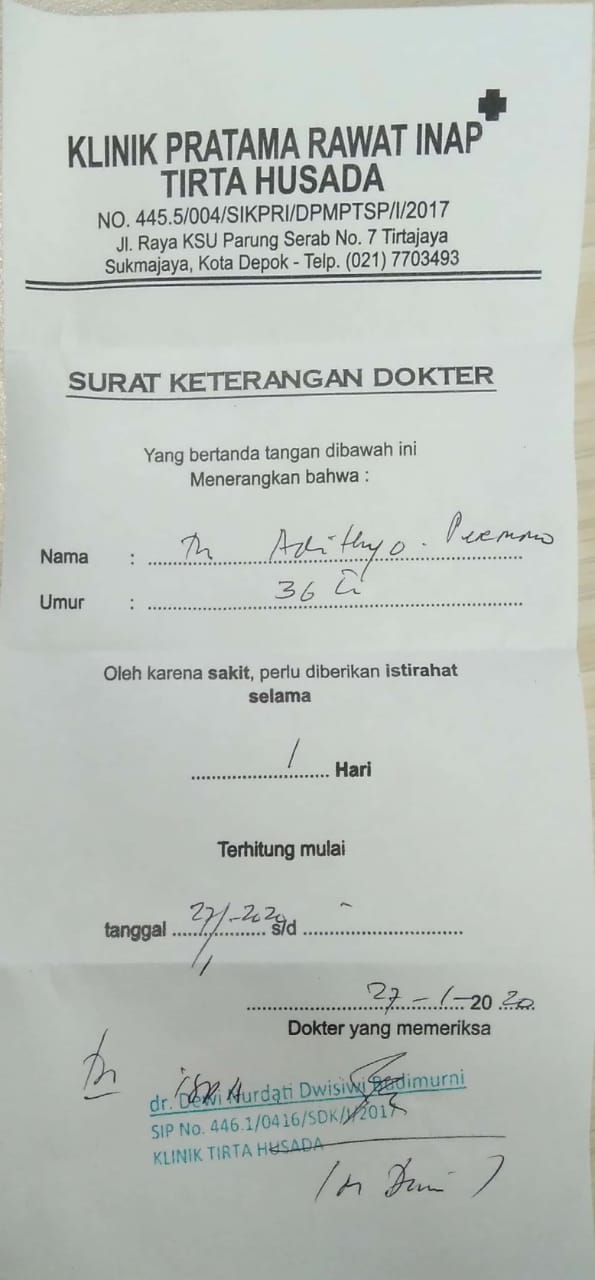 KLINIK PRATAMA RAWAT INAP
TIRTA HUSADA
NO. 445.5/004/SIKPRI/DPMPTSP/I/2017
Jl. Raya KSU Parung Serab No. 7 Tirtajaya
Sukmajaya, Kota Depok - Telp. (021) 7703493
SURAT KETERANGAN DOKTER
Yang bertanda tangan dibawah ini
Menerangkan bahwa :
Nama : Tn Adithyo
Umur : 36
Oleh karena sakit, perlu diberikan istirahat
selama
1 Hari
Terhitung mulai
tanggal 27/1-2020 s/d -
27-1-2020
Dokter yang memeriksa
dr. Dewi Nurdati Dwisiwi Budimurni
SIP No. 446.1/0416/SDK/I/2017
KLINIK TIRTA HUSADA